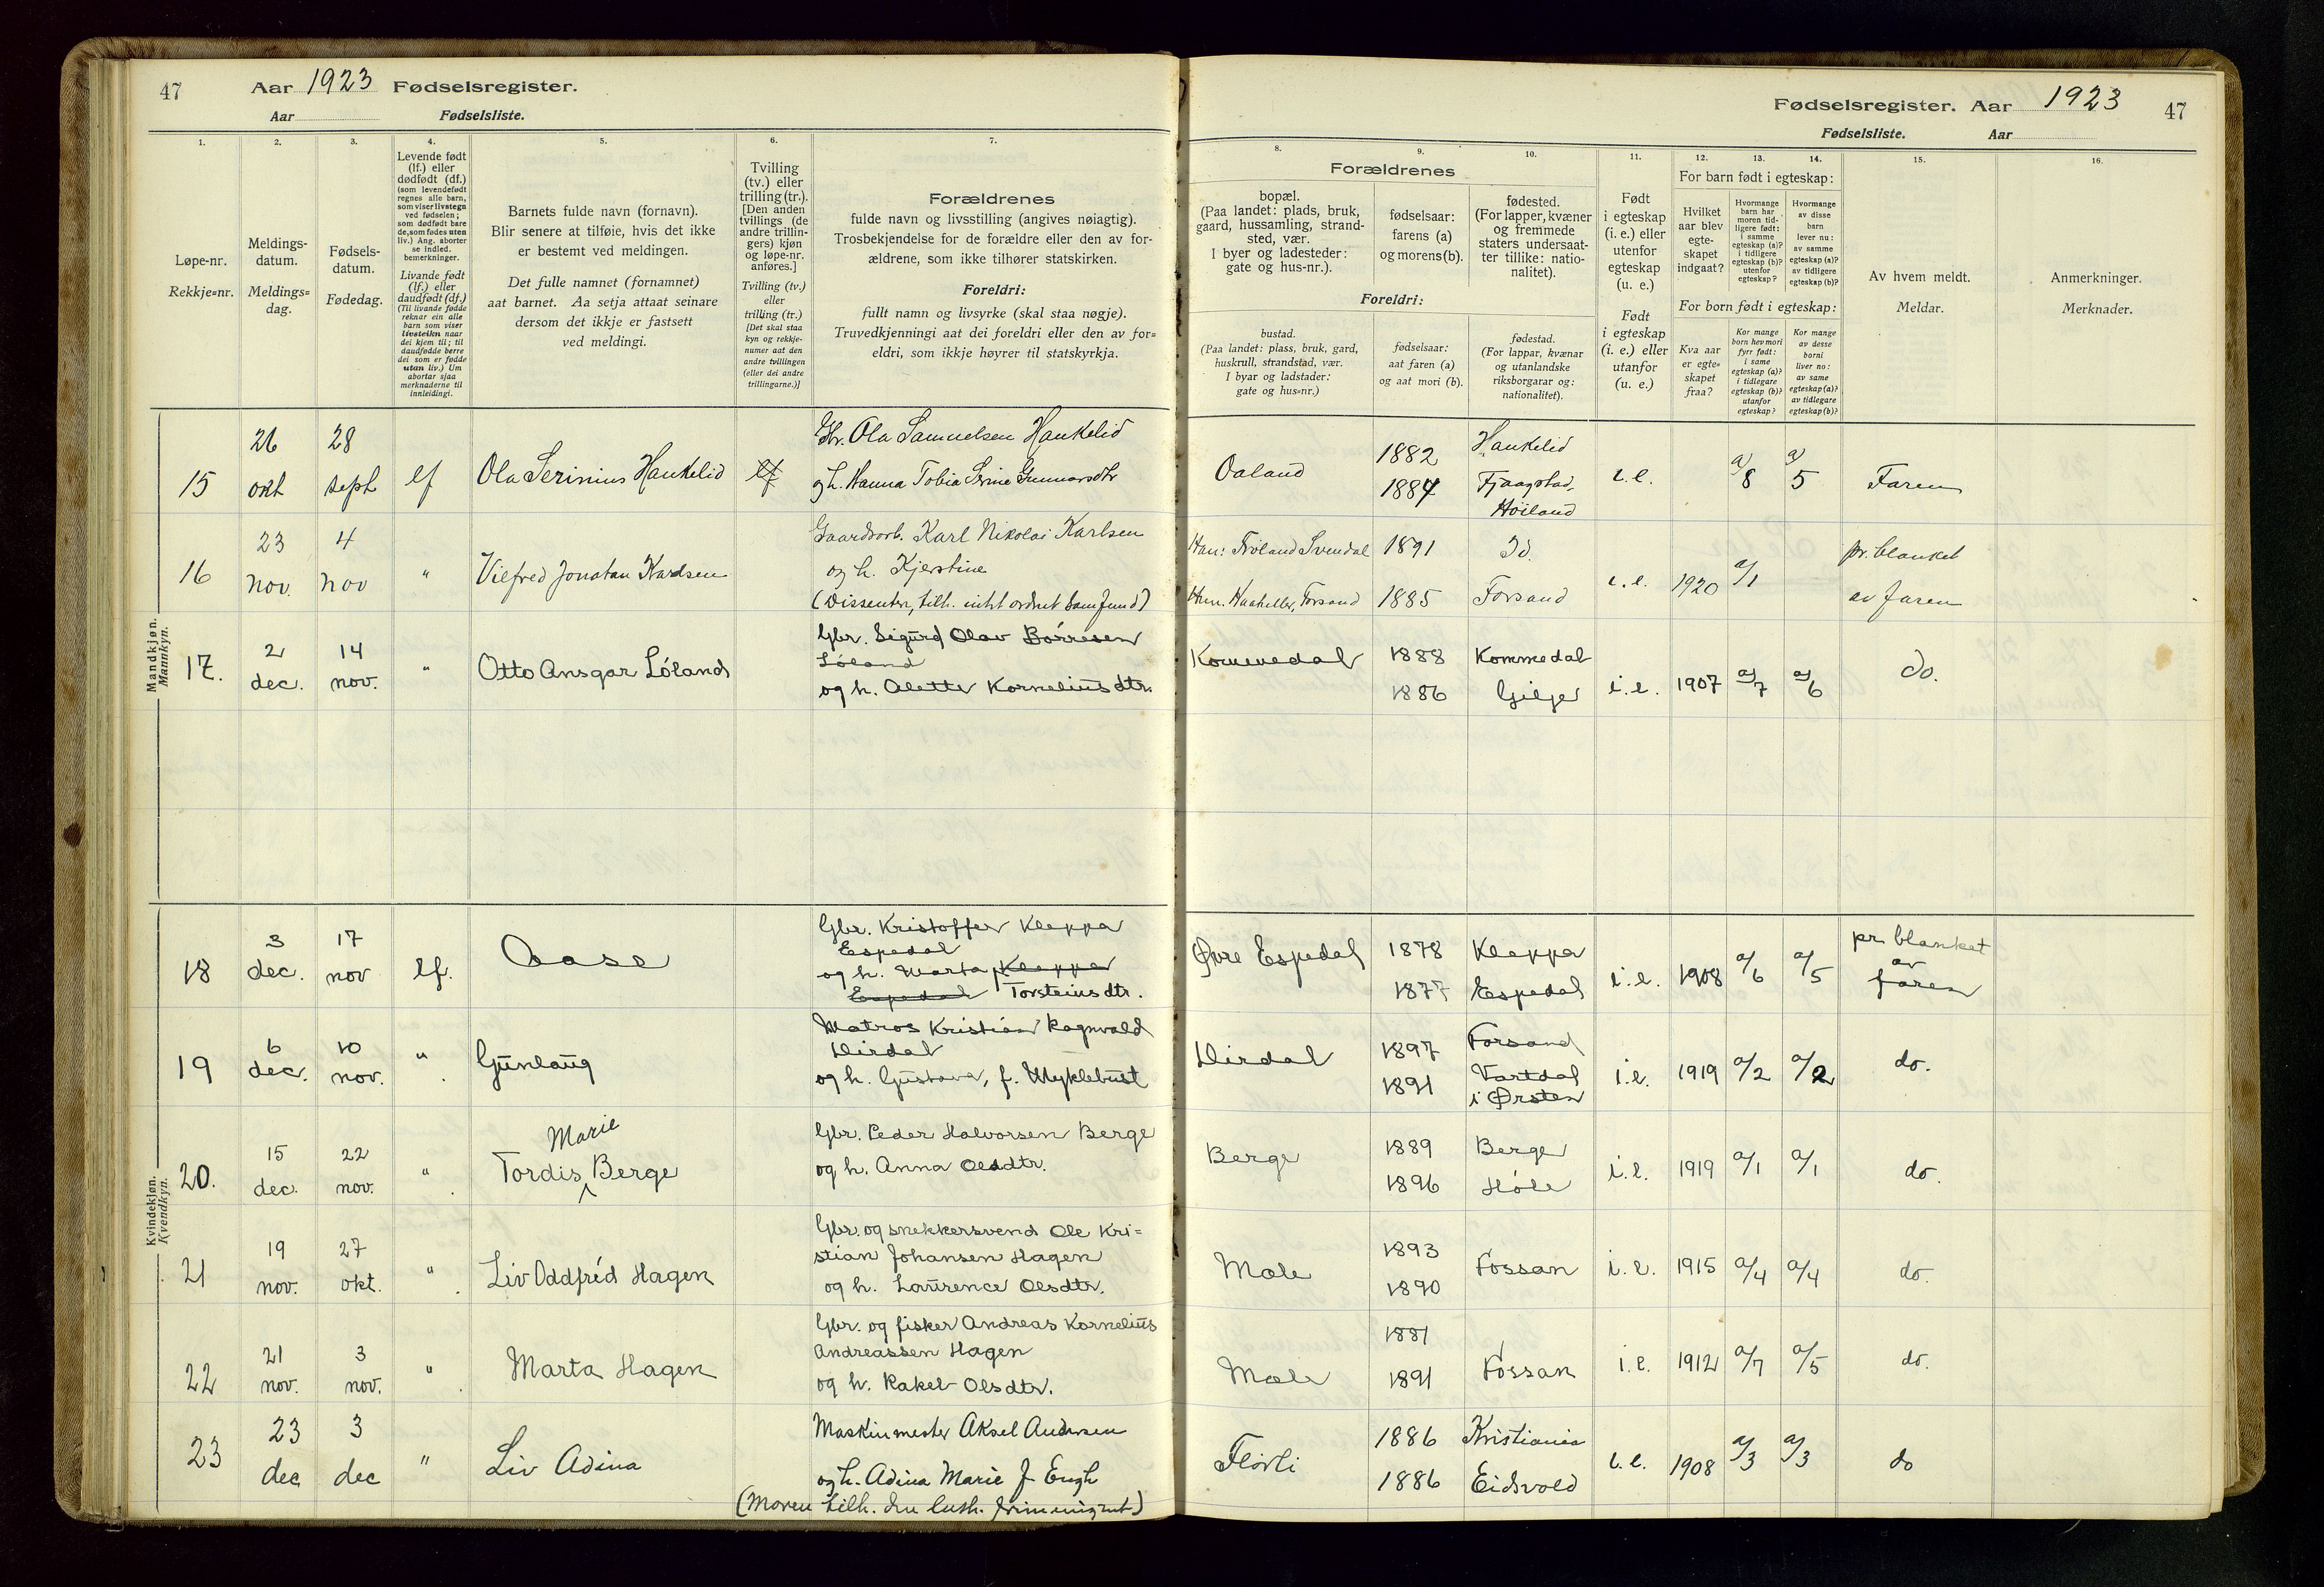 47 Aar 1923 Fødselsregister.
Aar Fødselsliste.
Fødselsregister. Aar 1923 47
Fødselsliste. Aar
1. 2. 3. 4. 5. 6. 7.
Løpe-nr.
Rekkje=nr.
Meldings-
datum.
Meldings=
dag.
Fødsels-
datum.
Fødedag.
Levende født
(lf.) eller
dødfødt (df.)
(som levendefødt
regnes alle barn,
som viser livstegn
ved fødselen;
som dødfødt bare
de, som fødes uten
liv.) Ang. aborter
se indled.
bemerkninger.
Livande født
(lf.) eller
daudfødt (df.)
(Til livande fødde
reknar ein alle
barn som viser
livsteikn naar
dei kjem til; til
daudfødde berre
dei som er fødde
utan liv.) Um
abortar sjaa
merknaderne til
innleidingi.
Barnets fulde navn (fornavn).
Blir senere at tilføie, hvis det ikke
er bestemt ved meldingen.
Det fulle namnet (fornamnet)
aat barnet. Aa setja attaat seinare
dersom det ikkje er fastsett
ved meldingi.
Tvilling
(tv.) eller
trilling (tr.).
[Den anden
tvillings (de
andre trillin-
gers) kjøn
og løpe-nr.
anføres.]
Tvilling (tv.)
eller
trilling (tr.)
[Det skal staa
kyn og rekkje-
numer aat den
andre tvillingen
(eller dei andre
trillingarne.)]
Forældrenes
fulde navn og livsstilling (angives nøiagtig).
Trosbekjendelse for de forældre eller den av for-
ældrene, som ikke tilhører statskirken.
Foreldri:
fullt namn og livsyrke (skal staa nøgje).
Truvedkjenningi aat dei foreldri eller den av for=
eldri, som ikkje høyrer til statskyrkja.
8. 9. 10. 11. 12. 13. 14. 15. 16.
Forældrenes
bopæl.
(Paa landet: plads, bruk,
gaard, hussamling, strand-
sted, vær.
I byer og ladesteder:
gate og hus-nr.).
fødselsaar:
farens (a)
og morens (b).
fødested.
(For lapper, kvæner
og fremmede
staters undersaat-
ter tillike: natio-
nalitet).
Foreldri:
bustad.
(Paa landet: plass, bruk, gard,
huskrull, strandstad, vær.
I byar og ladstader:
gate og hus=nr.)
fødselsaar:
aat faren (a)
og aat mori (b).
fødestad.
(For lappar, kvænar
og utanlandske
riksborgarar og:
nationalitet).
Født
i egteskap
(i. e.) eller
utenfor
egteskap
(u. e.)
Født
i egteskap
(i. e.) eller
utanfor
(u. e.)
For barn født i egteskap:
Hvilket
aar blev
egte-
skapet
indgaat?
Hvormange
barn har
moren tid-
ligere født:
i samme
egteskap (a)?
i tidligere
egteskap (b)?
utenfor
egteskap?
Hvormange
av disse
barn
lever nu:
av samme
egteskap (a)?
av tidligere
egteskap (b)?
For born født i egteskap:
Kva aar
er egte=
skapet
fraa?
Kor mange
born hev mori
fyrr født:
i same
egteskap (a)?
i tidlegare
egteskap (b)?
utanfor
egteskap?
Kor mange
av desse
borni
liver no:
av same
egteskap (a)?
av tidlegare
egteskap (b)?
Av hvem meldt.
Meldar.
Anmerkninger.
Merknader.
Mandkjøn.
Mannkyn.
15 26 okt 28 sept lf Ola Serinius Haukelid lf
Gbr. Ola Samuelsen Haukelid
og h. Hanna Tobia Serine Gunnarsdtr
Oaland 1882 Haukelid
1884 Fjaagstad, Høiland
i.e. a/8 a/5 Faren
16 23 nov. 4 nov " Vilfred Jonatan Karlsen
Gaardsarb. Karl Nikolai Karlsen
og h. Kjerstine
(Dissenter, tilh. intet ordnet samfund)
Han: Frøland Svendal 1891 Id.
Hun. Haaheller, Forsand 1885 Forsand
i.e. 1920 a/1 pr. blanket
av faren
17. 2 dec. 14 nov. " Otto Ansgar Löland
Gbr. Sigurd Olav Börresen
Löland
og h. Alette Kornelius dtr.
Kommedal 1888 Kommedal
1886 Gilje
i.e. 1907 a/7 a/6 do.
Kvindekjøn.
Kvendkyn.
18 3 dec. 17 nov lf. Aase
Gbr. Kristoffer Kleppa
Espedal
og h. Marta, Kleppa
Espedal Torsteinsdtr.
Øvre Espedal 1878 Kleppa
1877 Espedal
i.e. 1908 a/6 a/5 pr. blanket
av
faren
19 6 dec. 10 nov. " Gunlaug
Matros Kristian Ragnvald
Dirdal
og h. Gustava, f. Myklebust
Dirdal 1897 Forsand
1891 Vartdal
i Ørsten
i.e. 1919 a/2 a/2 do.
20. 15 dec. 22 nov. " Marie
Tordis Berge
Gbr. Peder Halvorsen Berge
og h. Anna Olsdtr.
Berge 1889 Berge
1896 Höle
i.e. 1919 a/1 a/1 do.
21 19 nov. 27 okt. " Liv Oddfrid Hagen
Gbr. og snekkersvend Ole Kri=
stian Johansen Hagen
og h. Laurence Olsdtr.
Mæle 1893
1890 Fossan
i.e. 1915 a/4 a/4 do.
22 21 nov. 3 nov. " Marta Hagen
Gbr. og fisker Andreas Kornelius
Andreassen Hagen
og h. Rakel Olsdtr.
Mæle 1881
1891 Fossan
i.e. 1912 a/7 a/5 do.
23 23 dec 3 dec " Liv Adina
Maskinmester Aksel Andersen
og h. Adina Marie f. Engh
(Moren tilh. den luth. frimenighet)
Flörli 1886 Kristiania
1886 Eidsvold
i.e. 1908 a/3 a/3 do